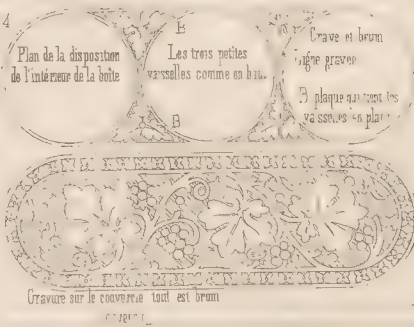 4
Plan de la disposition
de l'intérieur de la boîte
B
Les trois petites
vaisselles comme en
B
Grave et brum
ligne gravee
B plaque qui tient les
vaisselles en place
Gravure sur le couvercle tout est brum